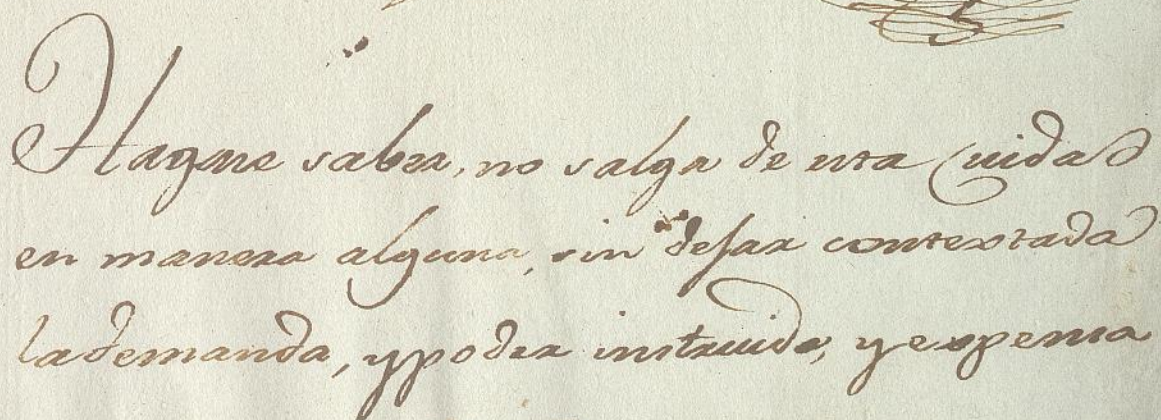 Hagase saber, no salga de esta Ciudad
en manera alguna, sin dejar contestada
la demanda, y poder instruido, y expensa